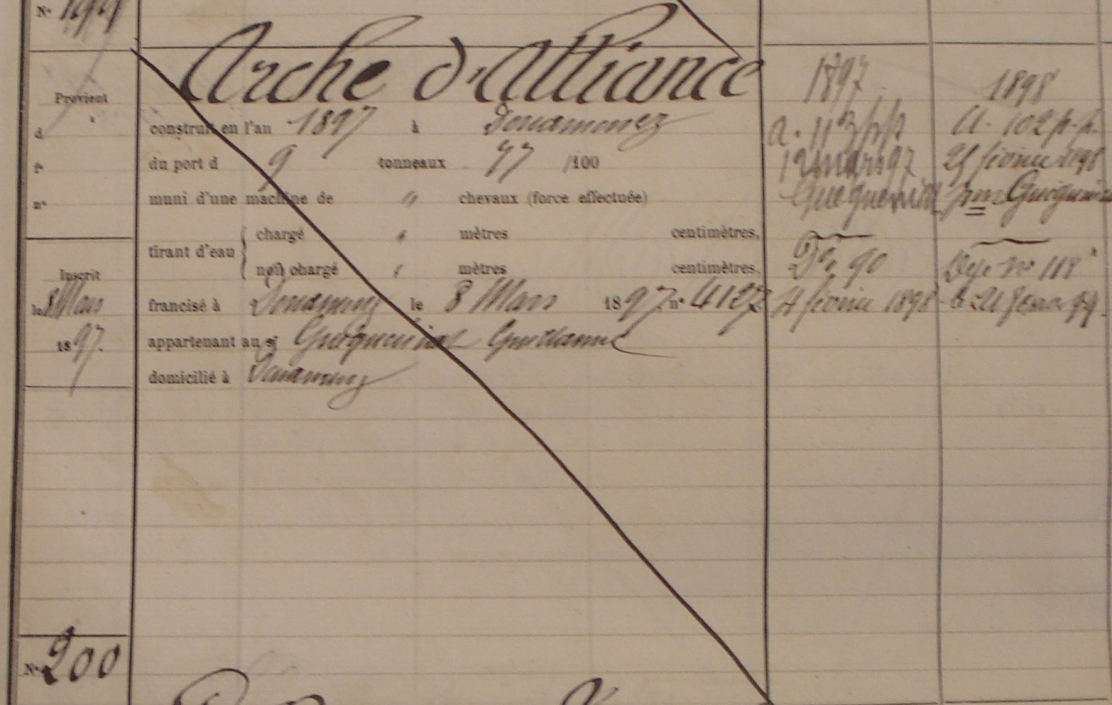 N° 199
Arche d'Alliance
Provient
d
f°
n°
construit en l'an 1897 à Douarnenez
du port d 9 tonneaux 77 /100
muni d'une machine de " chevaux (force effectuée)
tirant d'eau
chargé " mètres centimètres,
non chargé " mètres centimètres,
Inscrit
le 8 Mars
1897.
francisé à Douarnenez le 8 Mars 1897 n° 4127
appartenant au sr Guillaume
domicilié à Douarnenez
1897
a. 113 p.p
12 mars 97
Dn 90
4 février 1898
1898
A. 102 p.p.
25 février 1898
Dép n° 118
N° 200